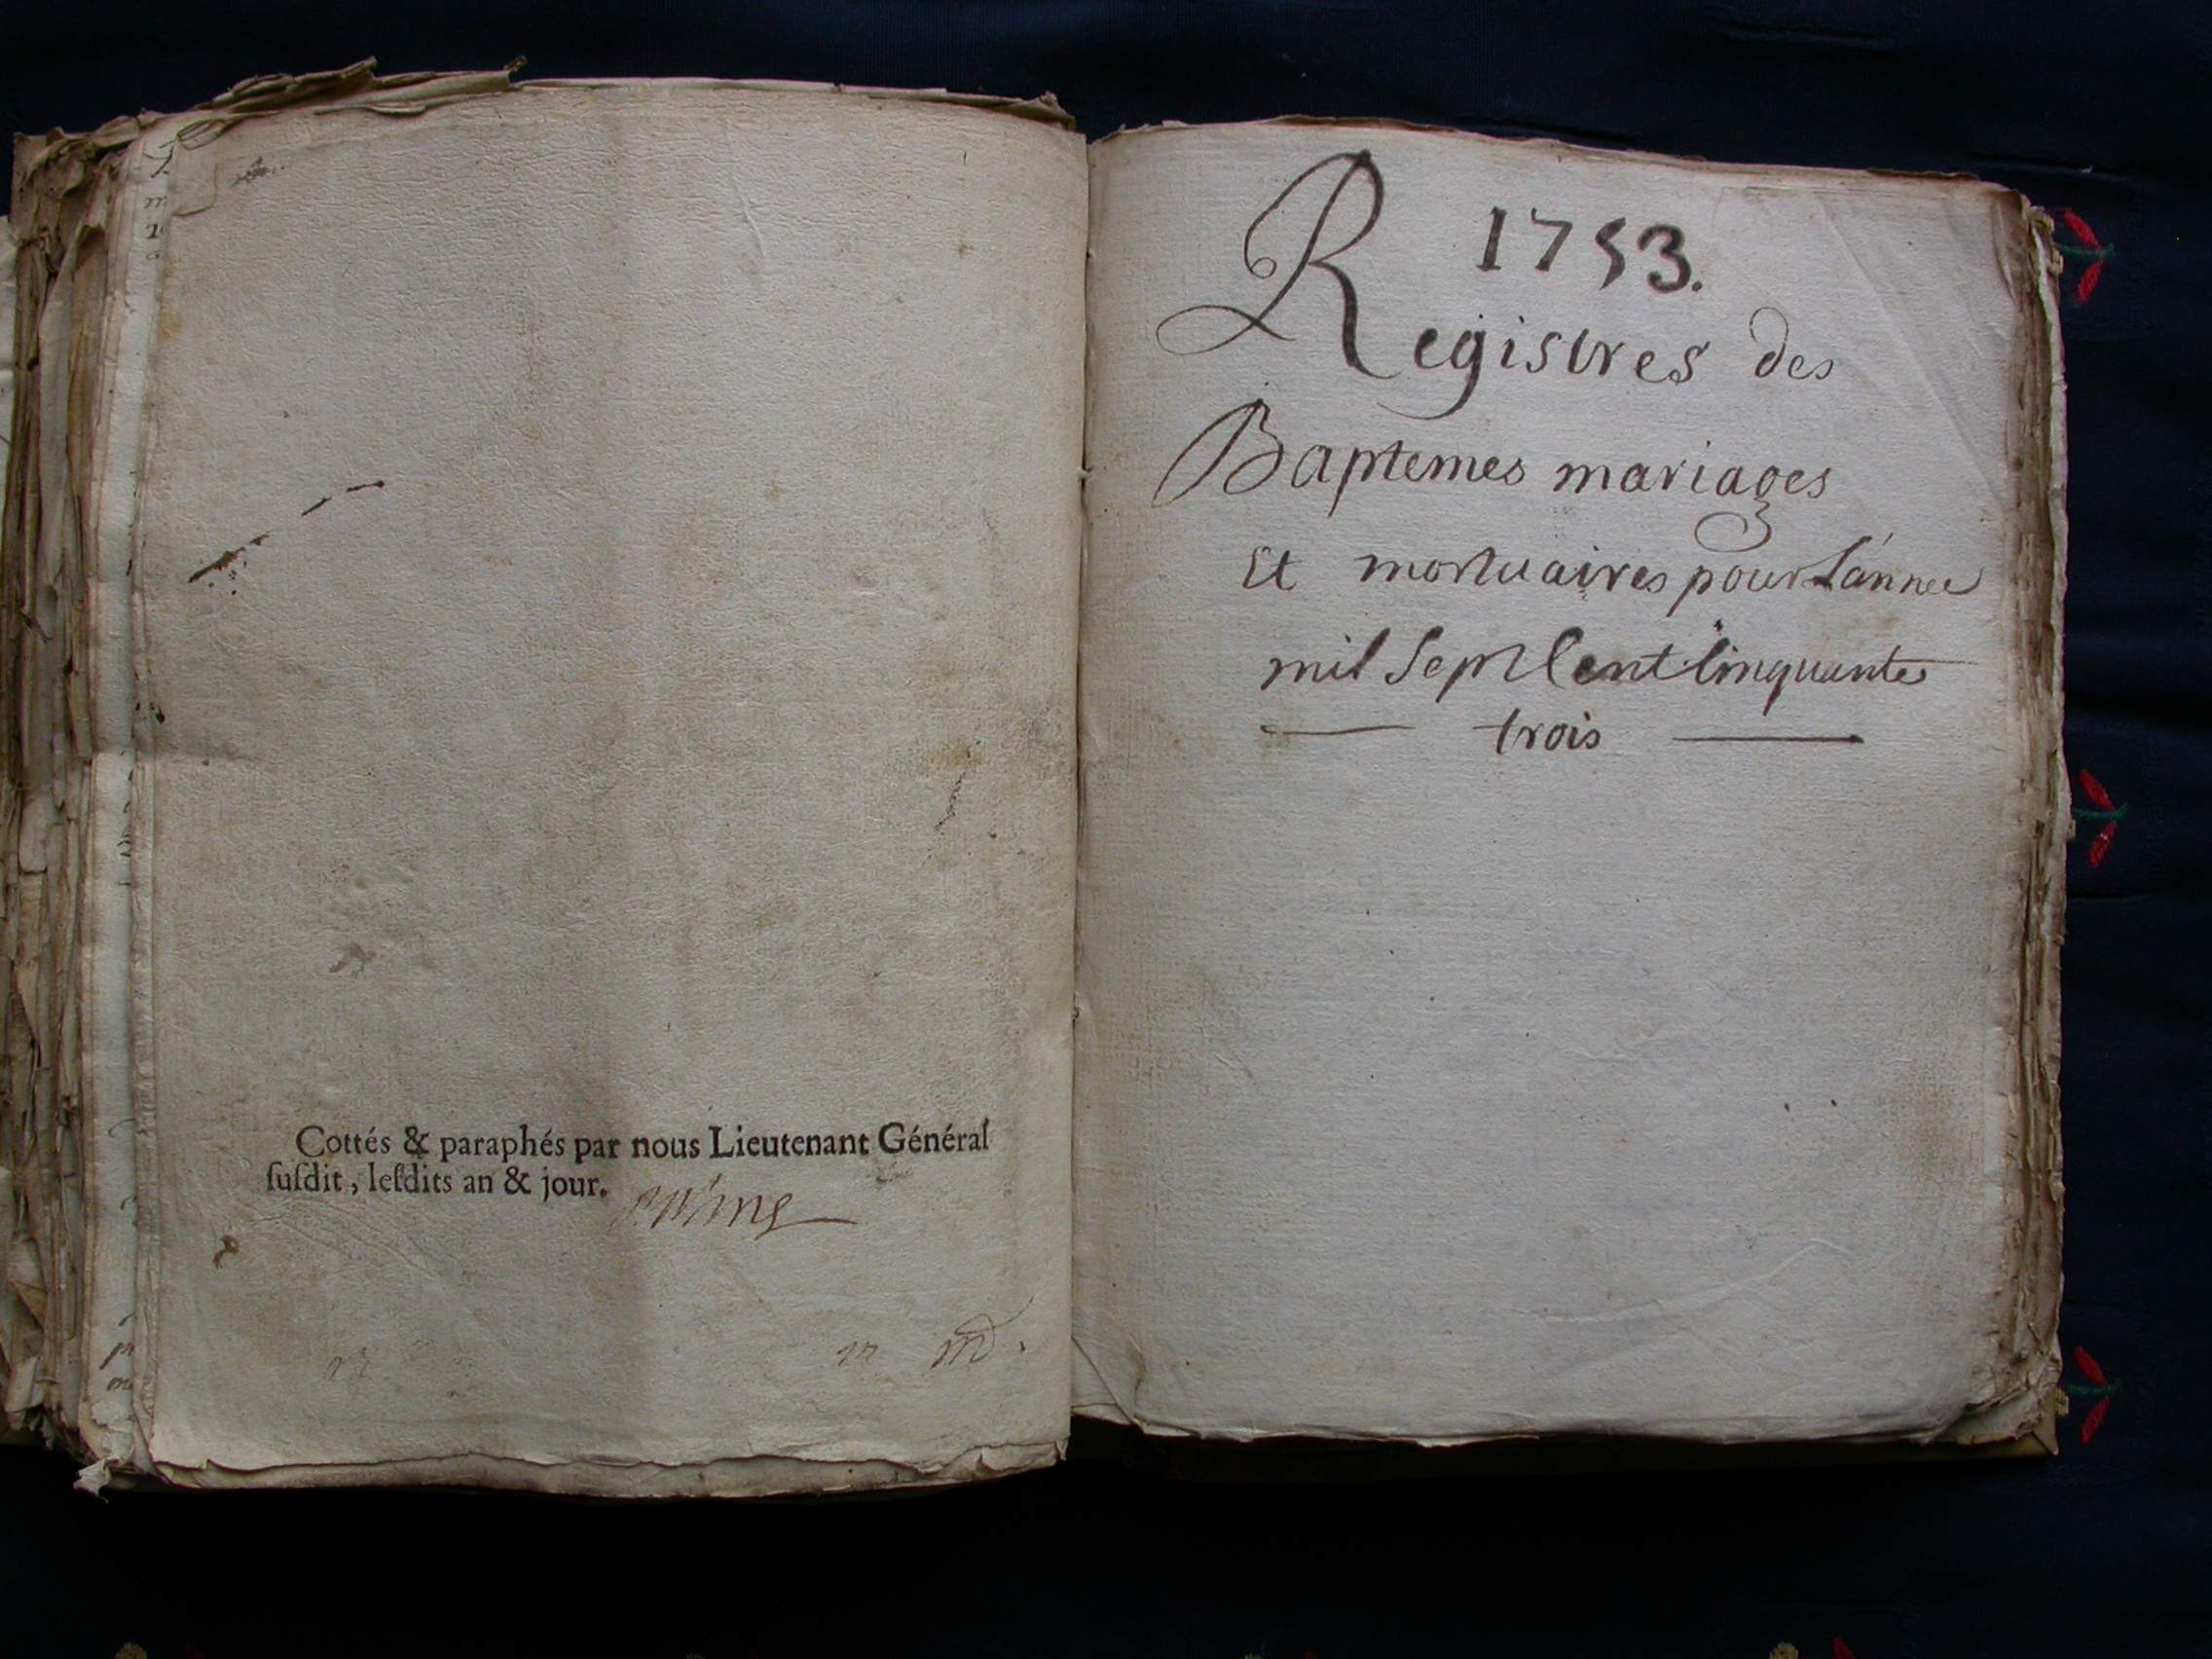 Cottés & paraphés par nous Lieutenant Général
ſuſdit, leſdits an & jour.
1753.
Registres des
Baptemes mariages
Et mortuaires pour L'annee
mil Sept Cent Cinquante
trois